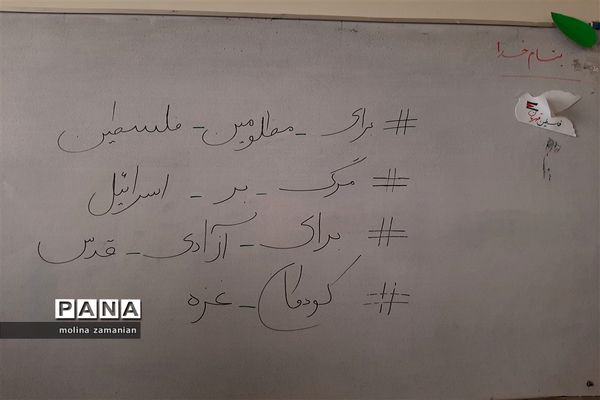 بنام خدا
#برای_مظلومین_فلسطین
#مرگ_بر_اسرائیل
#برای_آزادی_قدس
#کودکان_غزه
PANA
molina zamanian